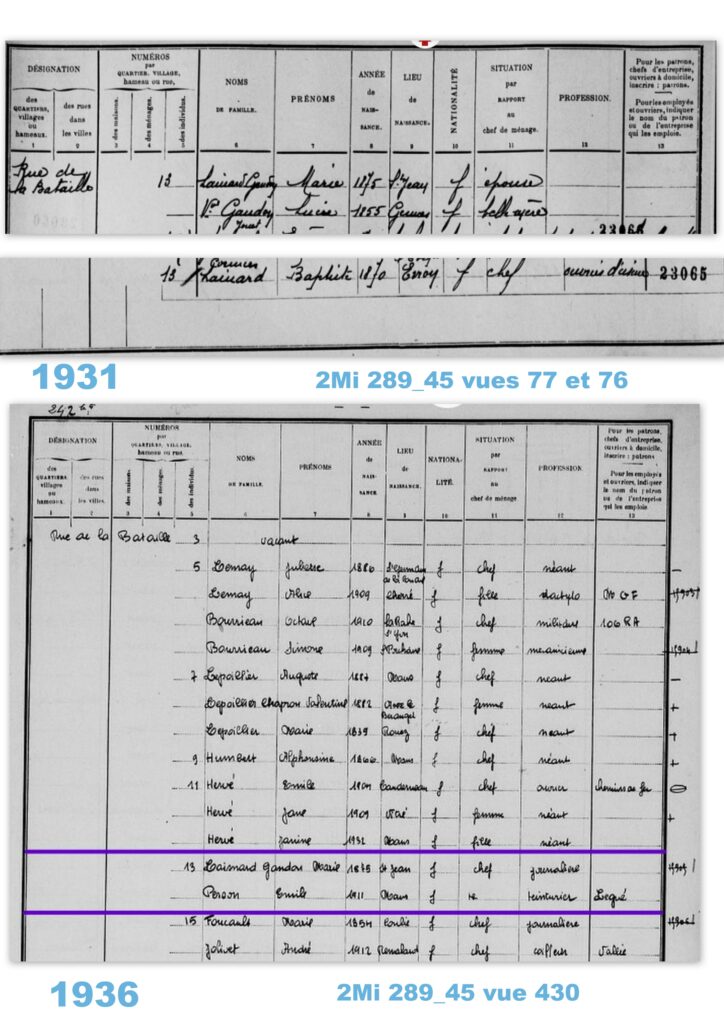 DÉSIGNATION
NUMÉROS
par
QUARTIER, VILLAGE,
hameau ou rue,
des
QUARTIERS,
villages
ou
hameaux.
des rues
dans
les villes
des maisons.
des ménages.
des individus.
NOMS
DE FAMILLE.
PRÉNOMS
ANNÉE
de
NAIS-
SANCE.
LIEU
de
NAISSANCE.
NATIONALITÉ
SITUATION
par
RAPPORT
au
chef de ménage.
PROFESSION.
Pour les patrons,
chefs d'entreprise,
ouvriers à domicile,
inscrire : patrons.
Pour les employés
et ouvriers, indiquer
le nom du patron
ou de l'entreprise
qui les emploie.
1 2 3 4 5 6 7 8 9 10 11 12 13
Rue de
la Bataille
13 Marie 1875 St Jean f épouse
Ve Gaudon 1855 f belle mère
23065
13 Baptiste 1870 f chef 23065
1931
2Mi 289_45 vues 77 et 76
242
DÉSIGNATION
NUMÉROS
par
QUARTIER, VILLAGE,
hameau ou rue.
des
QUARTIERS,
villages
ou
hameaux.
des rues
dans
les villes.
des maisons.
des ménages.
des individus.
NOMS
DE FAMILLE.
PRÉNOMS
ANNÉE
de
NAIS-
SANCE.
LIEU
de
NAISSANCE.
NATIONA-
LITÉ.
SITUATION
par
RAPPORT
au
chef de ménage
PROFESSION
Pour les patrons,
chefs d'entreprise,
ouvriers à domicile,
inscrire : patrons
Pour les employés
et ouvriers, indiquer
le nom du patron
ou de l'entreprise
qui les emploie.
1 2 3 4 5 6 7 8 9 10 11 12 13
Rue de la Bataille 3 vacant
5 Lemay Juliette 1886 f chef néant
Lemay Alice 1909 f fille dactylo
Bourrieau Octave 1910 f chef militaire 106 RA
Bourrieau Simone 1909 f femme
7 Lepaillier Auguste 1887 Mans f chef néant
Lepaillier Chapron Valentine 1882 f femme néant
Lepaillier Marie 1839 Rouez f chef néant
9 Humbert Alphonsine 1866 Mans f chef néant
11 Hervé Emile f chef ouvrier chemins de fer
Hervé Jane 1909 f femme néant
Hervé Janine 1932 Mans f fille néant
13 Laimard Gandon Marie 1875 St Jean f chef journalière
Person Emile 1911 Mans f teinturier
15 Foucault Marie 1854 Conlie f chef journalière
Jolivet André 1912 f chef coiffeur
1936
2Mi 289_45 vue 430